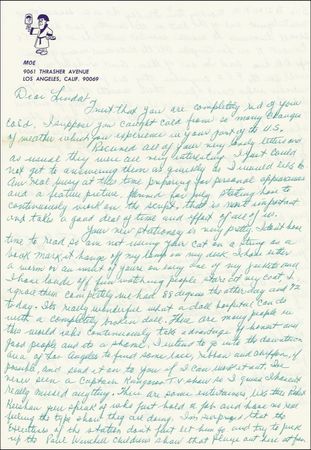 MOE
9061 THRASHER AVENUE
LOS ANGELES, CALIF. 90069
Dear Linda:
Trust that you are completely rid of your
cold. I suppose you caught cold from so many changes
of weather which you experience in your part of the U.S.
Received all of your very lovely letters and
as usual they were all very interesting. I just could
not get to answering them as quickly as I would like to.
Am real busy at this time preparing for personal appearances
and a feature picture. Norman has been staying here to
continuously work on the script. that is most important
and takes a good deal of time and effort of all of us.
Your new stationery is very pretty. I don't have
time to read so am not using your cat on a string as a
book mark it hangs off my lamp on my desk. I have
a worm or an inset of yours on one of my jackets and
I have loads of fun watching people stare at my coat. I
ignore them completely we had 88 degrees the other day and 92
today. It's really wonderful what a doll hospital can do
with a completely broken doll. There are many people in
this world who continuously take advantage of honest and
good people and its a shame. I intend to go into the downtown
area of Los Angeles to find some lace, ribbon and chiffon, if
possible, and send it on to you if I can
never seen a Captain Kangaroo TV show so I guess I haven't
really missed anything. There are some entertainers, like this
you speak of who just hold a job and have no real
feeling the type show they are doing. I'm surprised that the
directors of the station don't just let him go and try to pick
up the Paul Winchell childrens show that please out here at